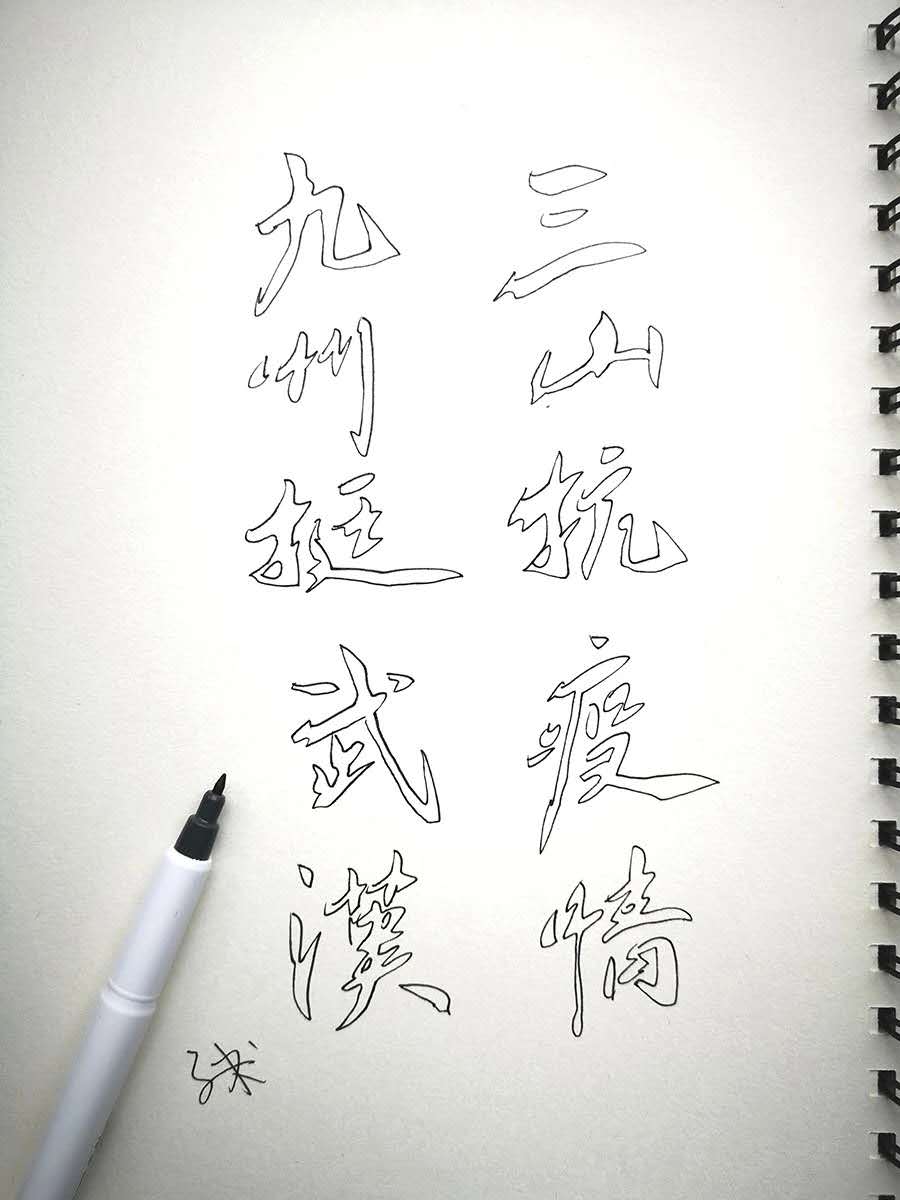 三山抗疫情
九州挺武漢